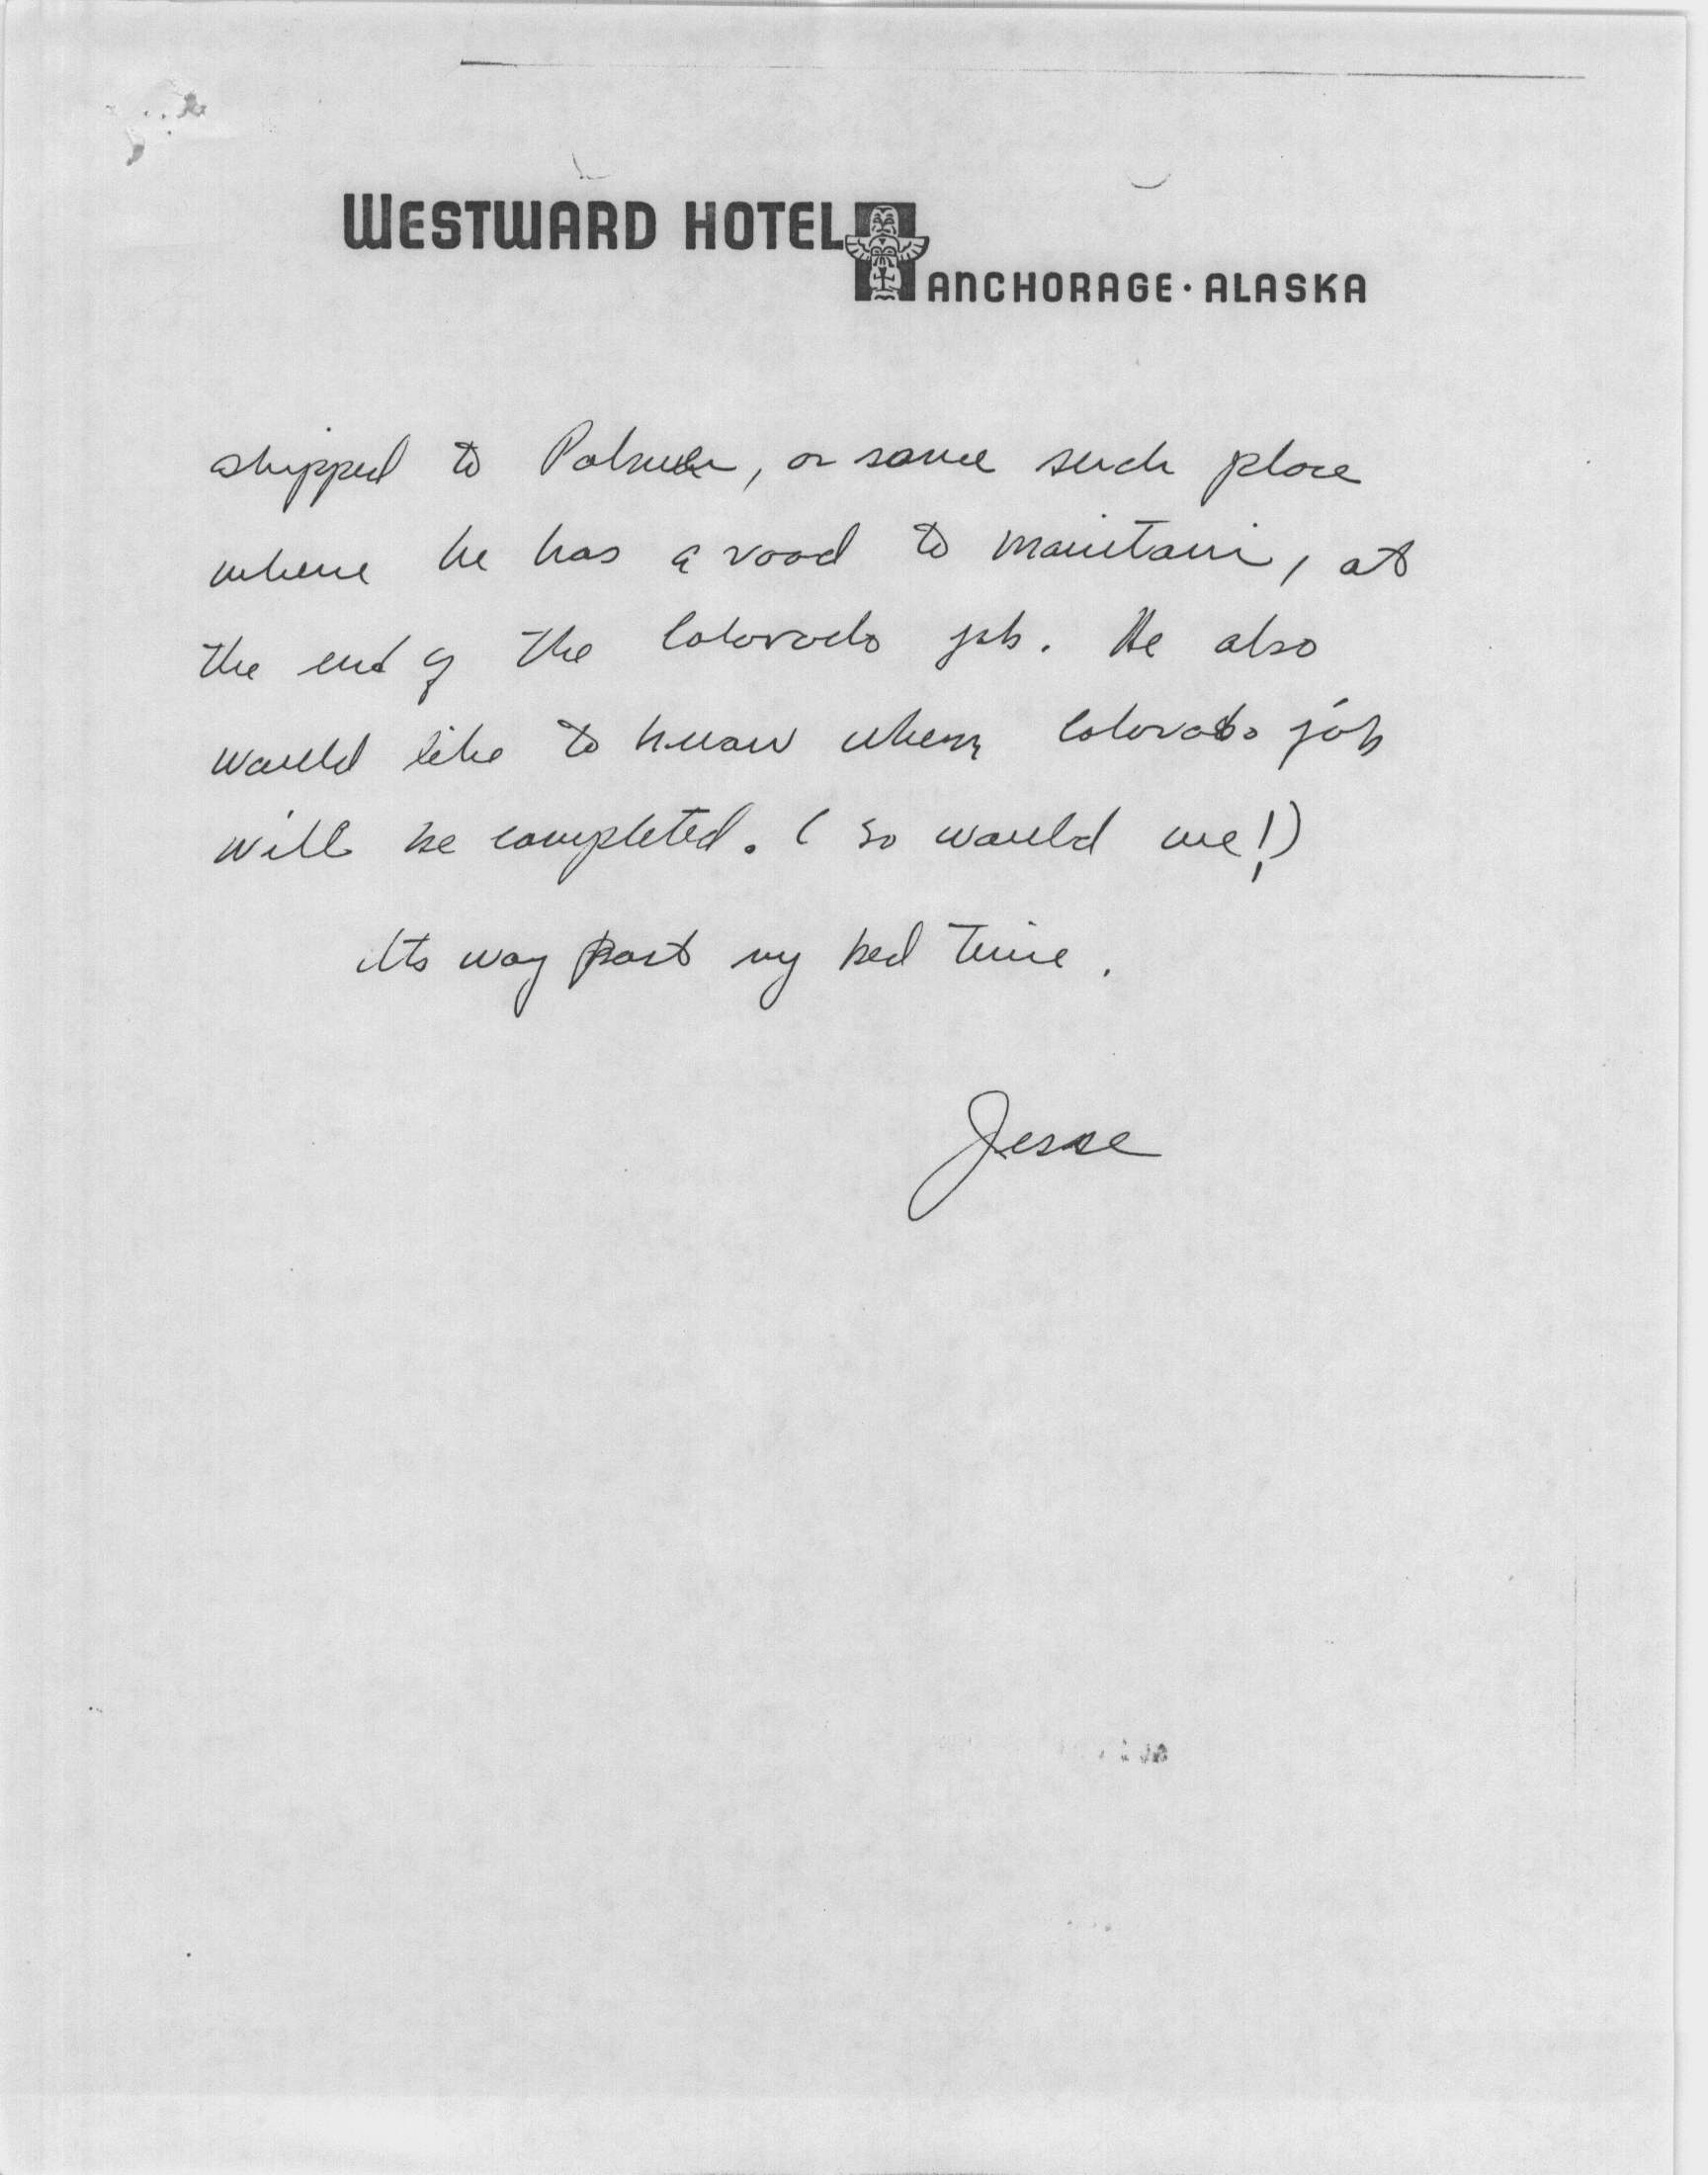 WESTWARD HOTEL
ANCHORAGE · ALASKA
shipped to Palmer, or some such place
where he has a road to maintain, at
the end of the Colorado job. He also
would like to know when Colorado job
will be completed. (so would we!)
Its way past my bed time.
Jesse